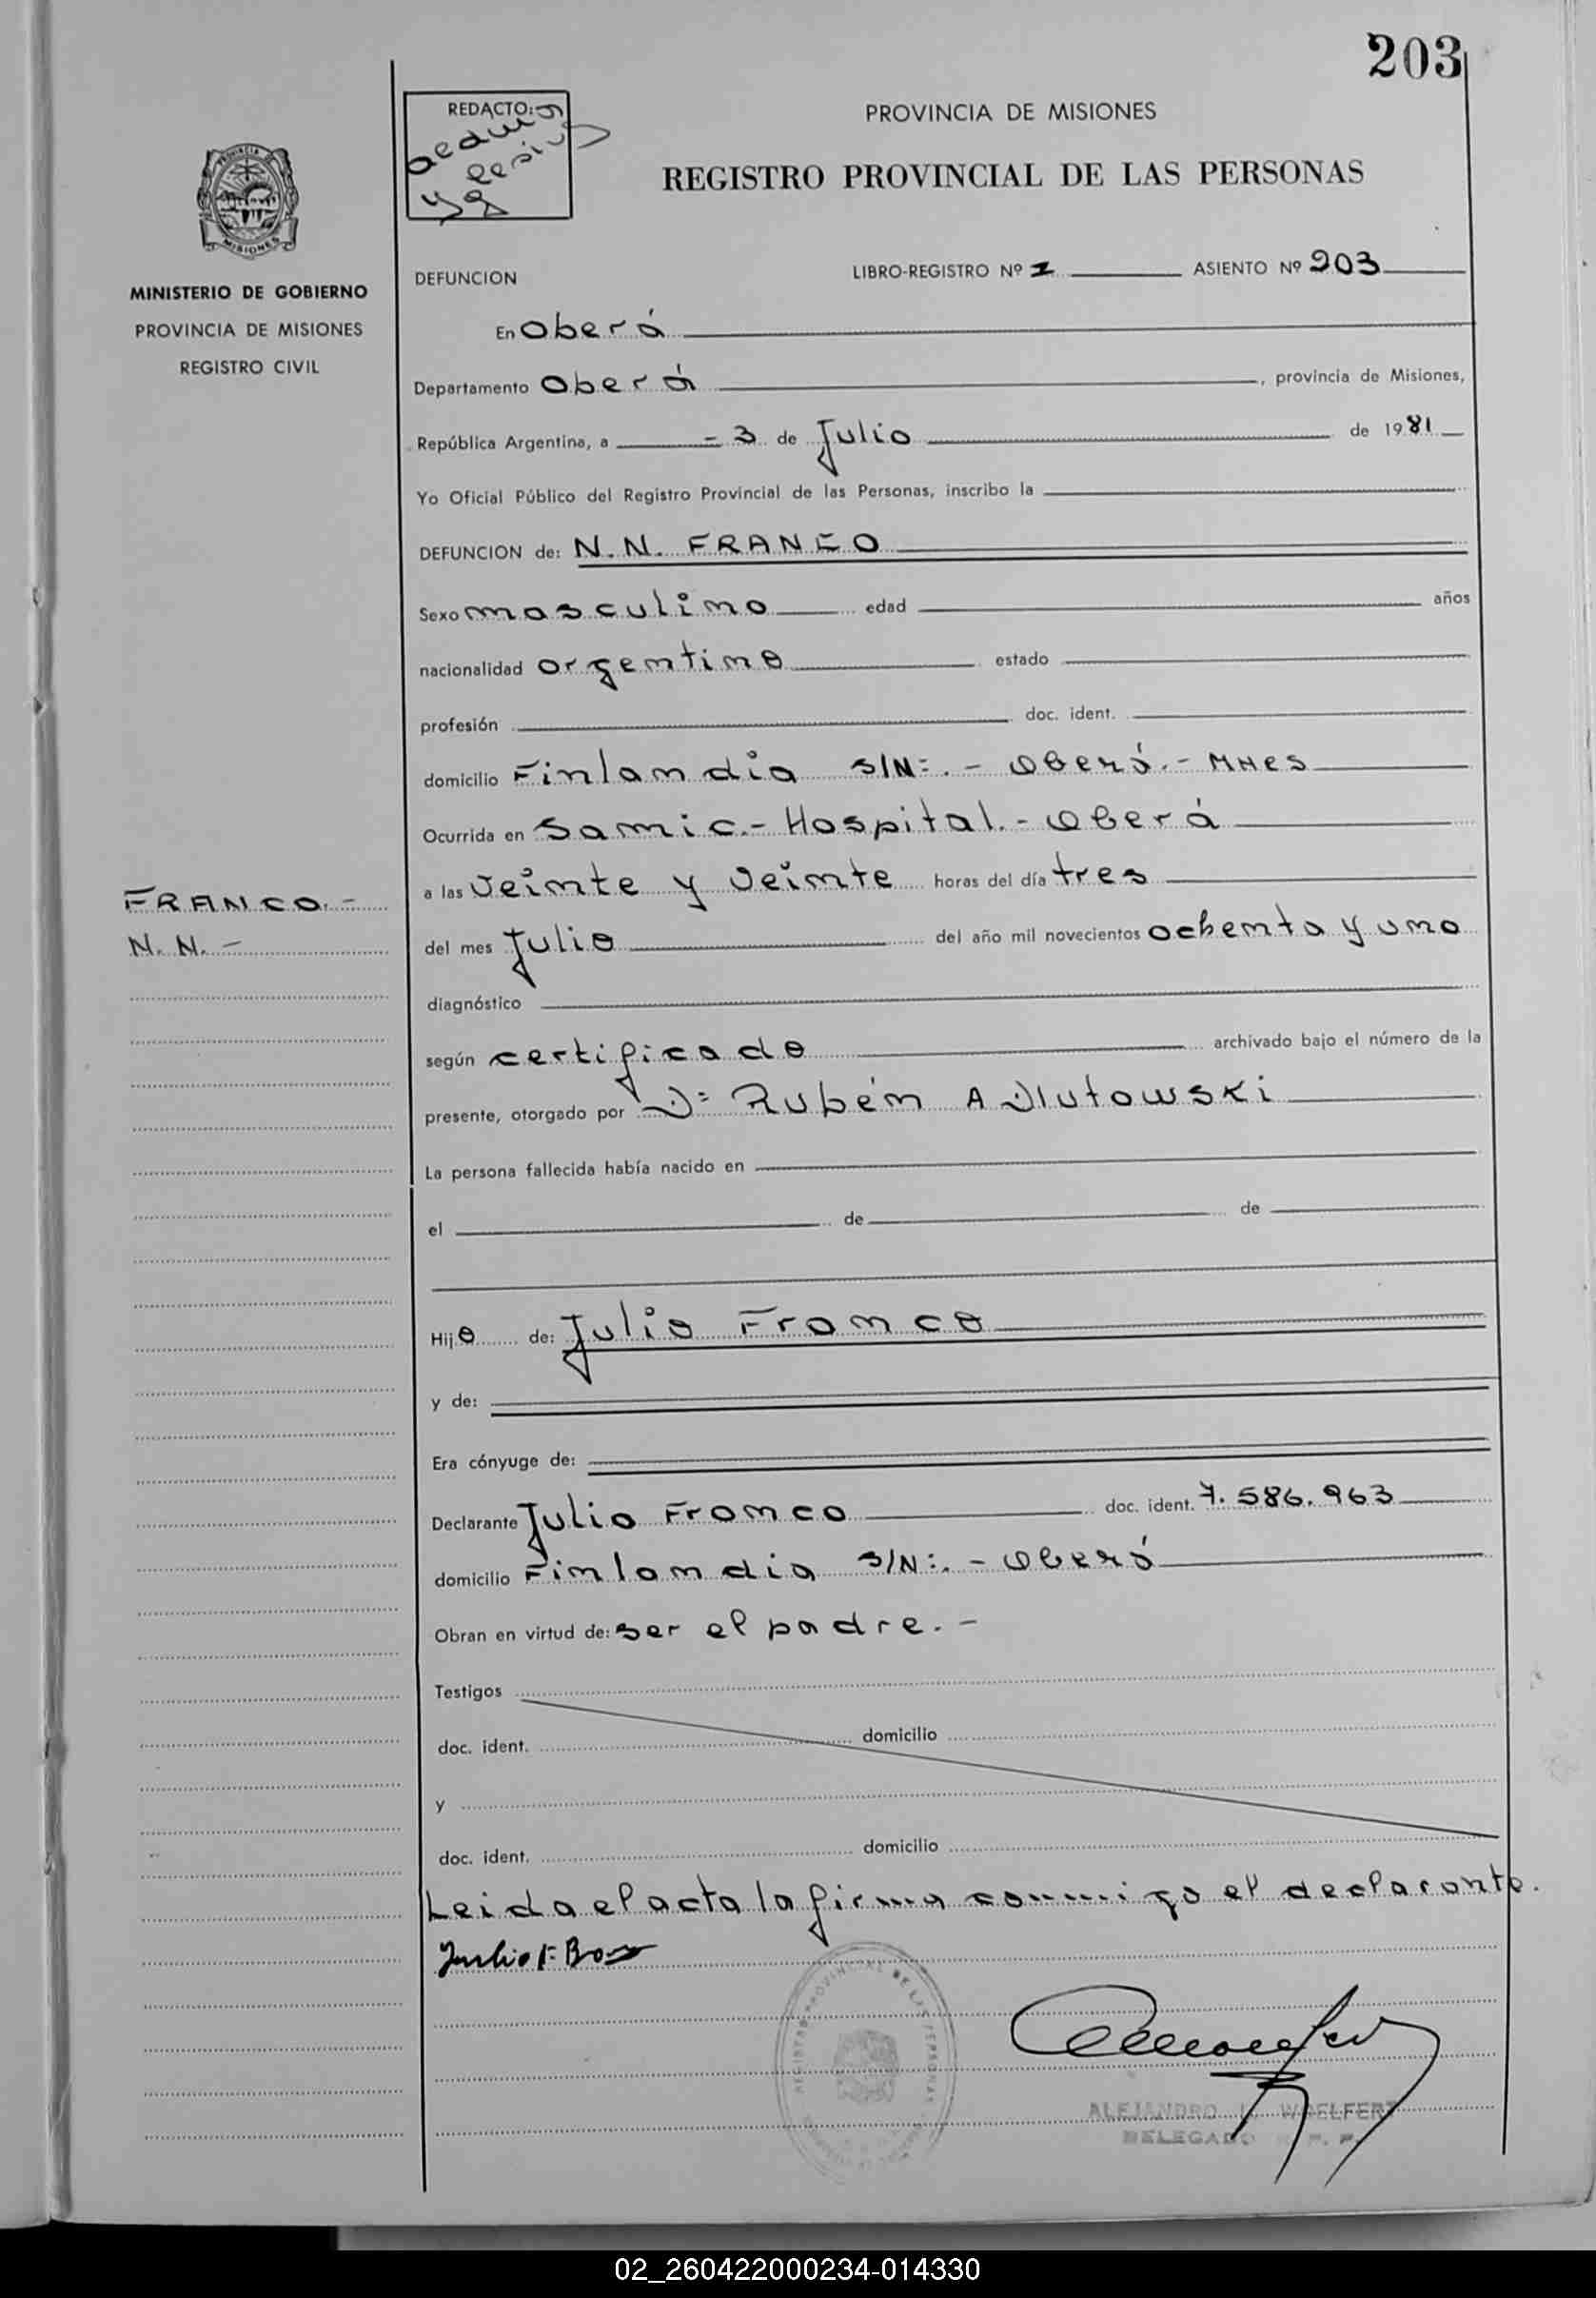 203
REDACTO:
PROVINCIA DE MISIONES
REGISTRO PROVINCIAL DE LAS PERSONAS
MISIONES
MINISTERIO DE GOBIERNO
PROVINCIA DE MISIONES
REGISTRO CIVIL
DEFUNCION LIBRO-REGISTRO Nº ASIENTO Nº 203
En Oberá
Departamento Oberá, provincia de Misiones,
República Argentina, a - 3 de Julio de 1981
Yo Oficial Público del Registro Provincial de las Personas, inscribo la
DEFUNCION de: N.N. FRANCO
Sexo masculino edad años
nacionalidad argentino estado
profesión doc. ident.
domicilio Finlandia S/Nº.- Oberá.- Mnes
Ocurrida en Samic.- Hospital.- Oberá
a las Veinte y Veinte horas del día tres
FRANCO.-
N.N.-
del mes Julio del año mil novecientos ochenta y uno
diagnóstico
según certificado archivado bajo el número de la
presente, otorgado por Dº Rubén A Dlutowski
La persona fallecida había nacido en
el de de
Hijo de: Julio Franco
y de:
Era cónyuge de:
Declarante Julio Franco doc. ident. 7.586.963
domicilio Finlandia S/Nº.- Oberá
Obran en virtud de: ser el padre.-
Testigos
doc. ident. domicilio
y
doc. ident. domicilio
Leida el acta la firma conmigo el declarante.
REGISTRO PROVINCIAL DE LAS PERSONAS
ALEJANDRO WOELFERT
DELEGADO
02_260422000234-014330